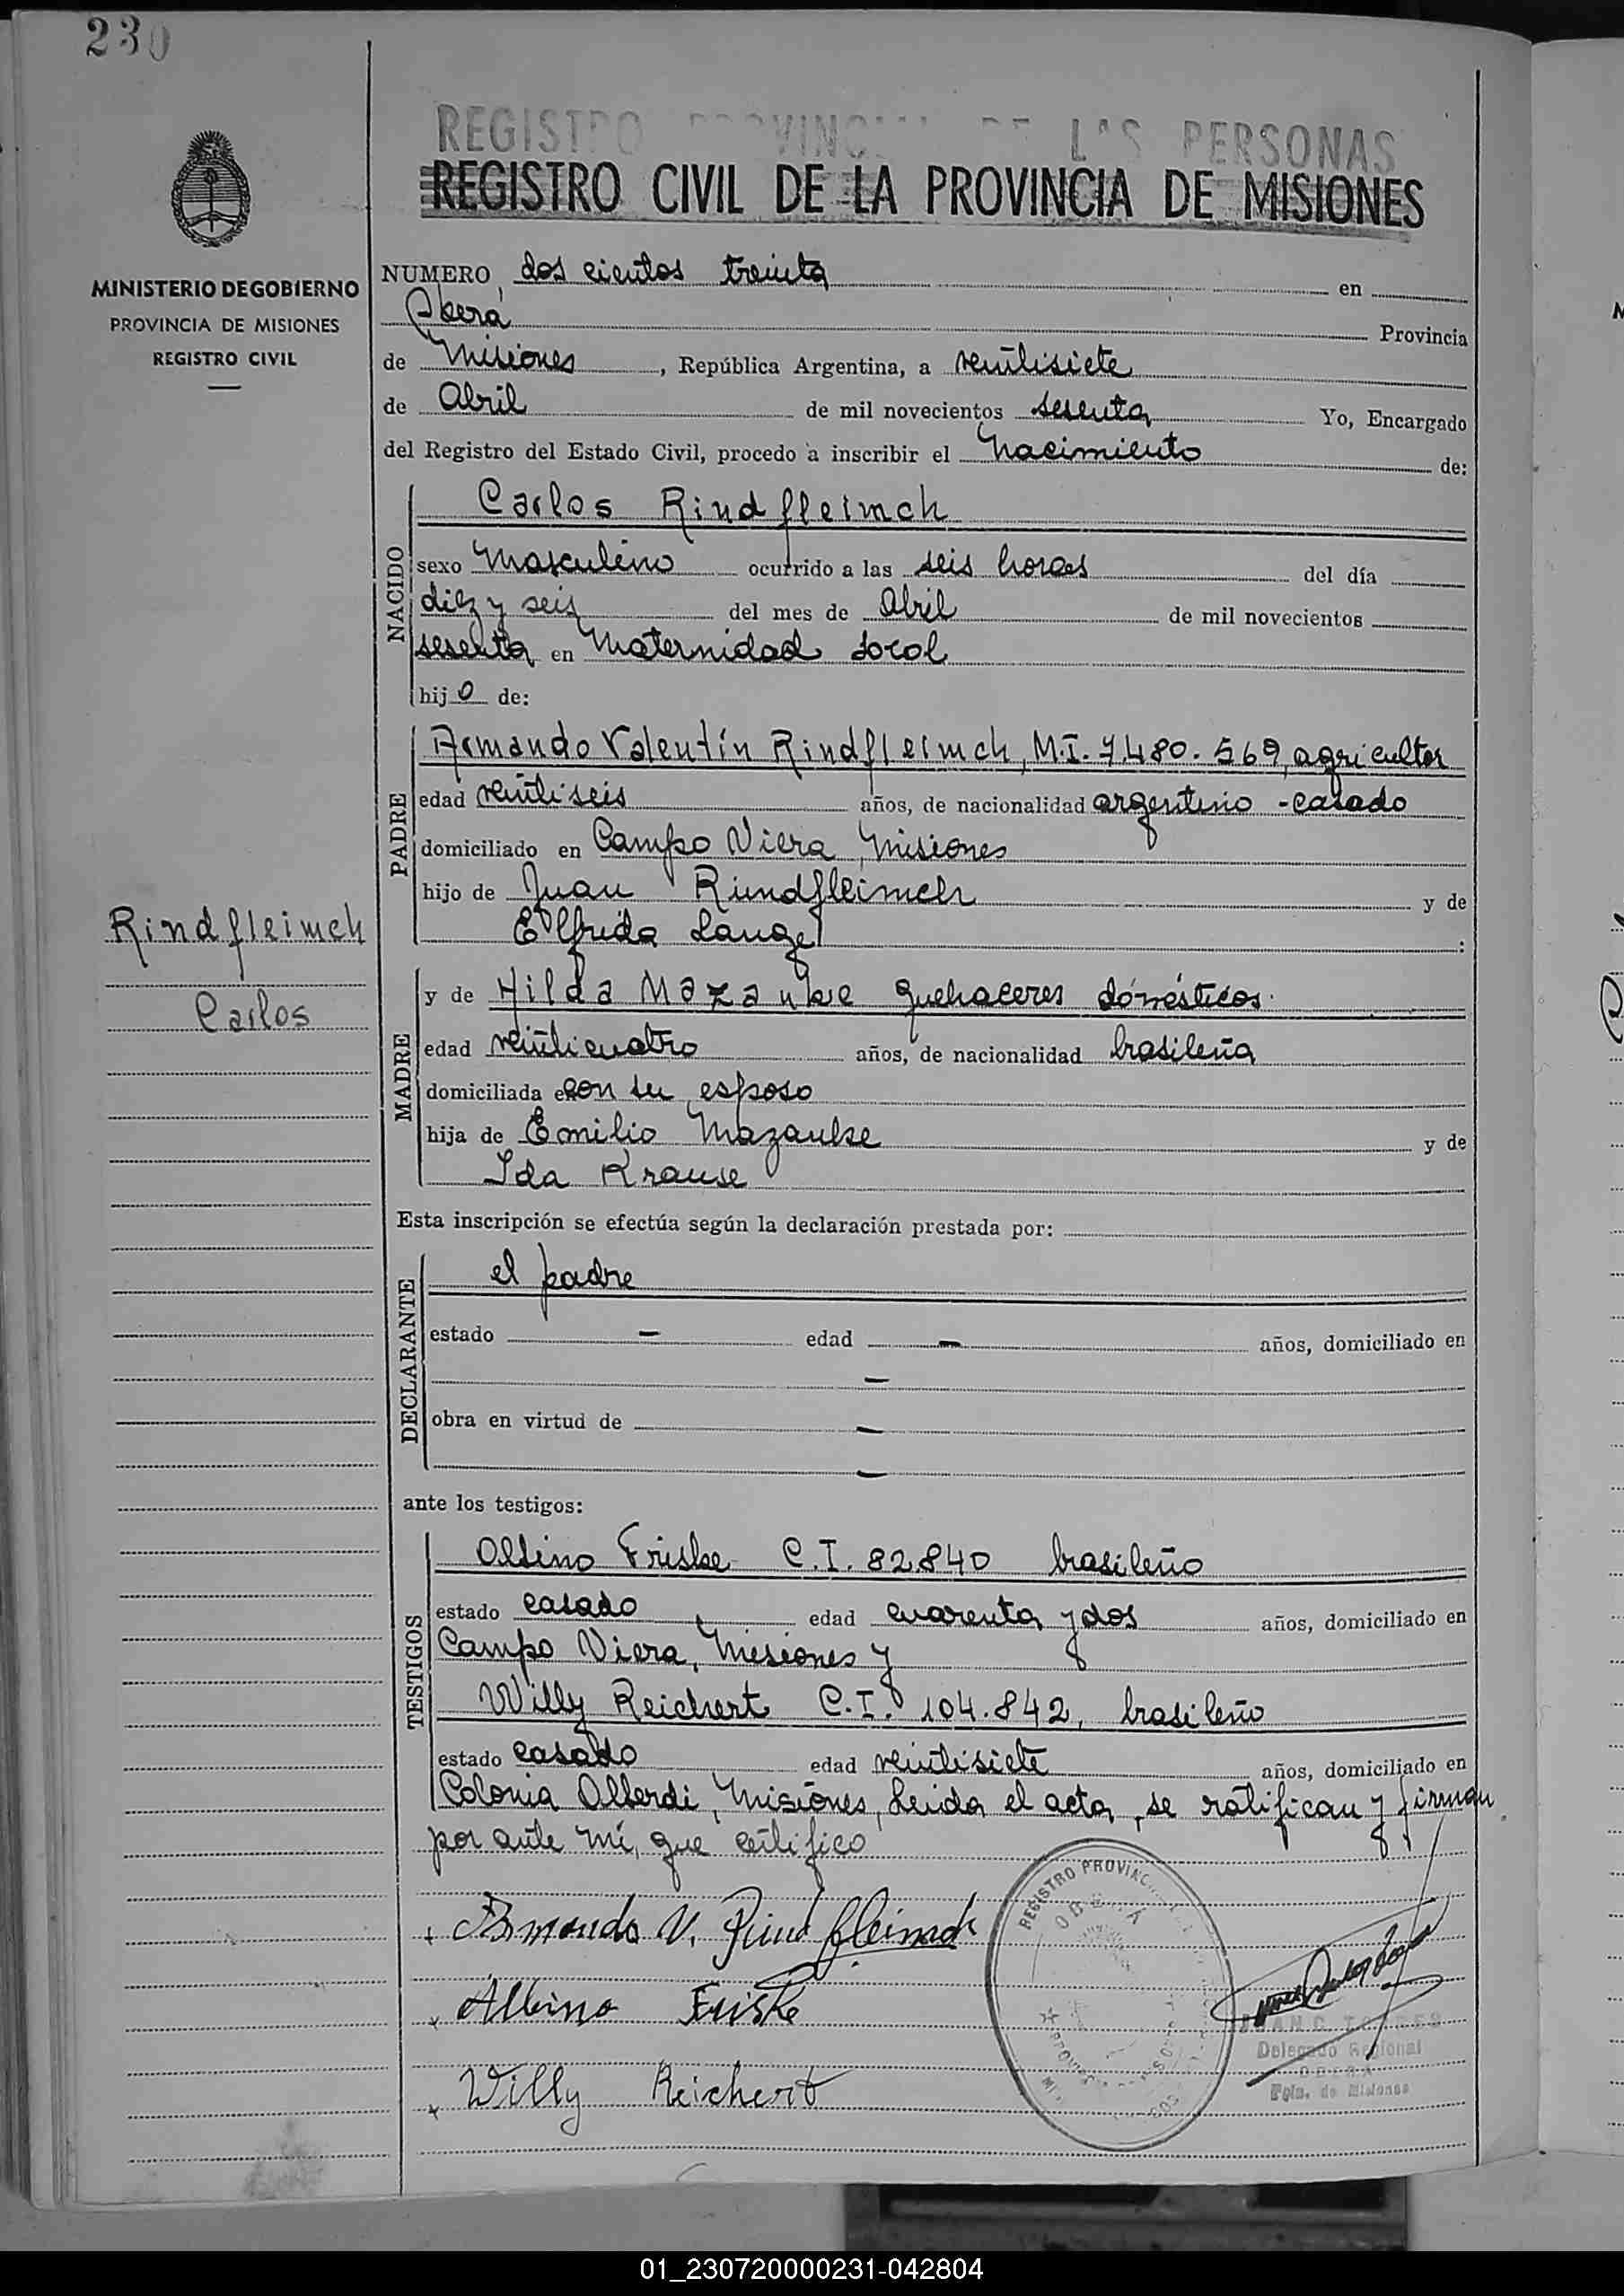 230
REGISTRO PROVINCIAL DE LAS PERSONAS
REGISTRO CIVIL DE LA PROVINCIA DE MISIONES
MINISTERIO DE GOBIERNO
PROVINCIA DE MISIONES
REGISTRO CIVIL
NUMERO dos cientos treinta en
Oberá Provincia
de Misiones, República Argentina, a veintisiete
de Abril de mil novecientos sesenta Yo, Encargado
del Registro del Estado Civil, procedo a inscribir el Nacimiento de:
NACIDO
Carlos Rindfleimch
sexo Masculino ocurrido a las seis horas del día
diez y seis del mes de Abril de mil novecientos
sesenta en Maternidad local
hijo de:
PADRE
Armando Valentín Rindfleimch, M.I. 7.480.569, agricultor
edad veintiseis años, de nacionalidad argentino - casado
domiciliado en Campo Viera, Misiones
hijo de Juan Rindfleimch y de
Elfrida Lange :
Rindfleimch
Carlos
MADRE
y de Hilda Mazanke quehaceres domésticos.
edad veinticuatro años, de nacionalidad brasileña
domiciliada con su esposo
hija de Emilio Mazanke y de
Ida Krause
Esta inscripción se efectúa según la declaración prestada por:
DECLARANTE
el padre
estado — edad — años, domiciliado en
—
obra en virtud de —
—
ante los testigos:
TESTIGOS
Albino Friske C.I. 82.840 brasileño
estado casado, edad cuarenta y dos años, domiciliado en
Campo Viera, Misiones y
Willy Reichert C.I. 104.842, brasileño
estado casado edad veintisiete años, domiciliado en
Colonia Alberdi, Misiones, Leida el acta, se ratifican y firman
por ante mí, que certifico
Armando V. Rindfleimch
Albino Friske
Willy Reichert
REGISTRO PROVINC
OBERA
JUAN C. TORRES
Delegado Regional
OBERA
Pcia. de Misiones
01_230720000231-042804